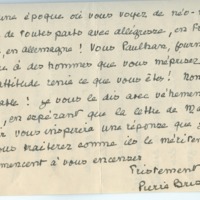 une époque où vous voyez de néo-
de toutes parts avec allégresse, en
en allemagne! Vous Paulhan, fourn
à des hommes que vous méprisez
attitude renie ce que vous êtes! Non
! je vous le dis avec véhémen
en espérant que la lettre de Ma
vous inspirera une réponse que j
traiterez comme ils le mérite
mencent à vous encenser.
Tristement